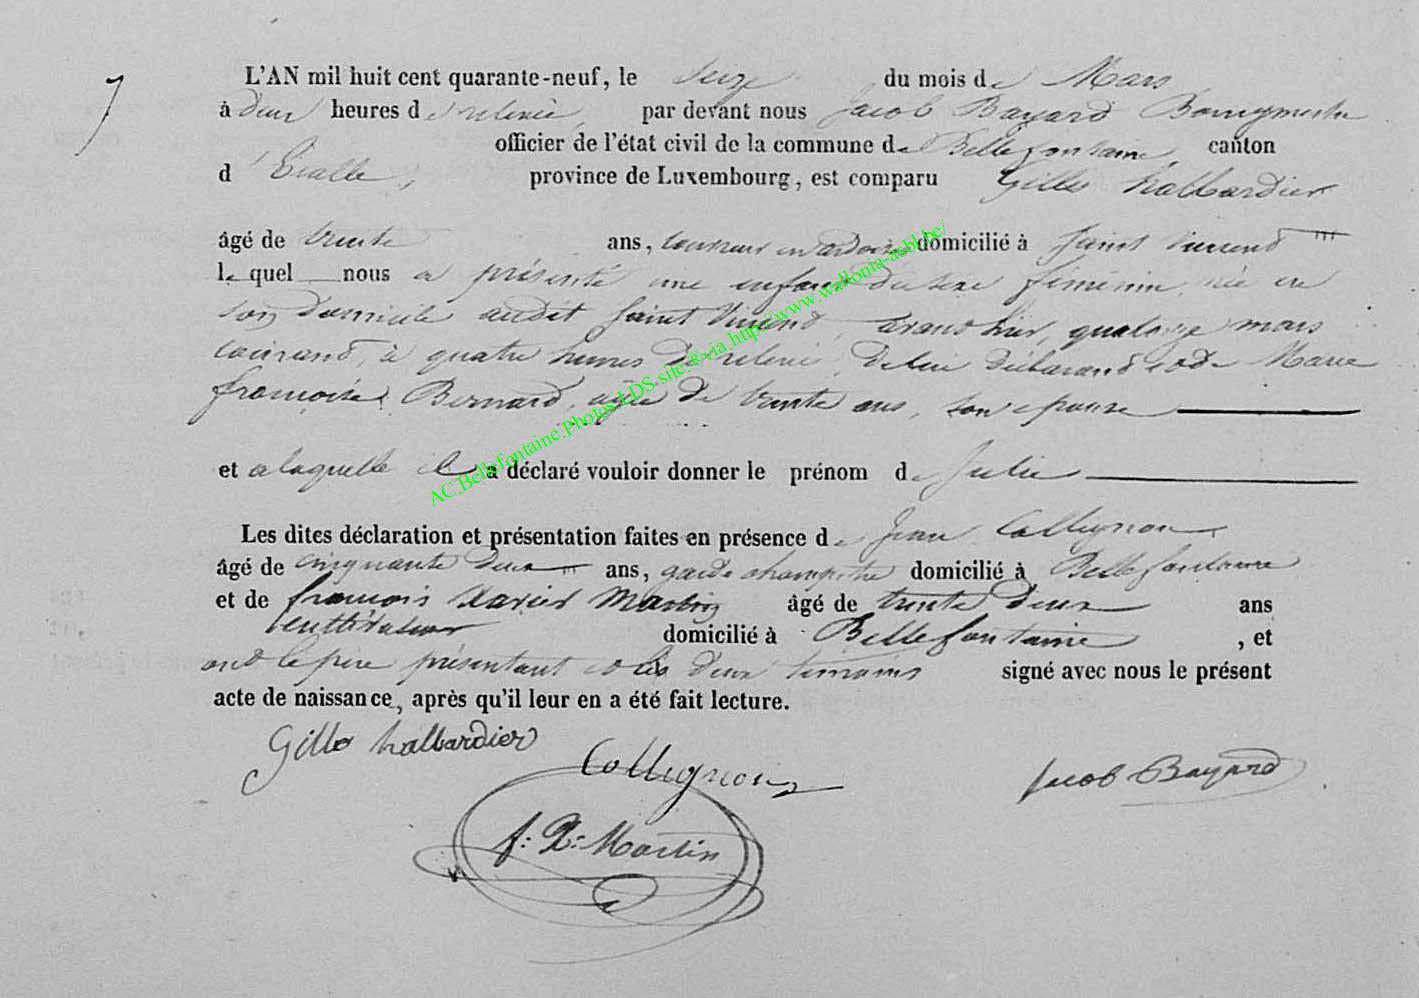 7
L'AN mil huit cent quarante-neuf, le seize du mois de Mars
à deux heures de relevée, par devant nous Jacob Bayard Bourgmestre
officier de l'état civil de la commune de Bellefontaine, canton
d'Etalle, province de Luxembourg, est comparu Gilles hallbardier
âgé de trente ans, couvreur en ardoises domicilié à Saint Vincent
le quel nous a présenté une enfant du sexe féminin, née en
son domicile audit Saint Vincent, avant hier, quatorze mars
courant, à quatre heures de relevée, de lui déclarant et de Marie
françoise Bernard, agée de trente ans, son epouse
et a laquelle il a déclaré vouloir donner le prénom de Julie
Les dites déclaration et présentation faites en présence de Jean Collignon
âgé de cinquante deux ans, garde champetre domicilié à Bellefontaine
et de françois Xavier Martin âgé de trente deux ans
domicilié à Bellefontaine, et
ont le père présentant et les deux temoins signé avec nous le présent
acte de naissance, après qu'il leur en a été fait lecture.
Gilles hallbardier
Collignon
Jacob Bayard
f: X: Martin
AC.Bellefontaine.Photos.LDS.site.®via.http://www.wallonia-asbl.be/